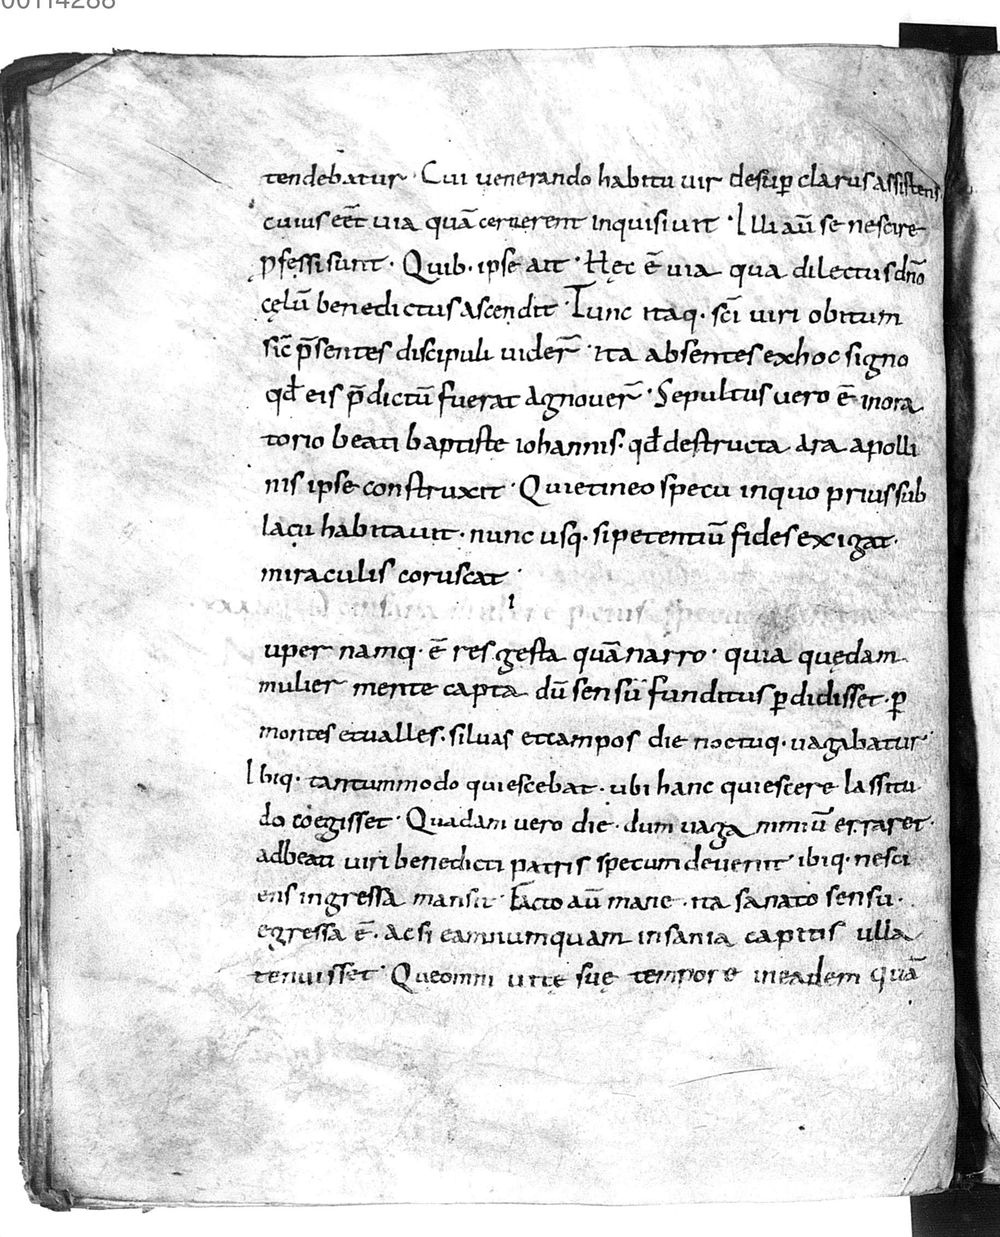 00114288
tendebatur · Cui uenerando habitu uir desup̱ clarus assistens
cuius eēt uia quā cernerent inquisiuit · Illi aū se nescire
p̱fessi sunt · Quib· ipse ait · Hęc ē uia qua dilectus dn̄o
cęlū benedictus ascendit · Tunc itaq· sc̄i uiri obitum
sic̄ p̄sentes discipuli uider̄ · ita absentes ex hoc signo
qđ eis p̄dictū fuerat agnouer̄ · Sepultus uero ē in ora
torio beati baptiste iohannis · qđ destructa ara apolli
nis ipse construxit · Qui et in eo specu in quo prius sub
lacu habitauit · nunc usq· si petentiū fides exigat ·
miraculis coruscat ·
uper namq· ē res gesta quā narro · quia quędam
mulier mente capta dū sensū funditus p̱didisset · p̱
montes et ualles · siluas et campos die noctuq· uagabatur
Ibiq· tantummodo quiescebat · ubi hanc quiescere lassitu
do coegisset · Quadam uero die · dum uaga nimiū erraret ·
ad beati uiri benedicti patris specum deuenit · ibiq· nesci
ens ingressa mansit · Facto aū mane · ita sanato sensu ·
egressa ē · ac si eam numquam insania capitis ulla
tenuisset · Que omni uitę suę tempore in eadem quā